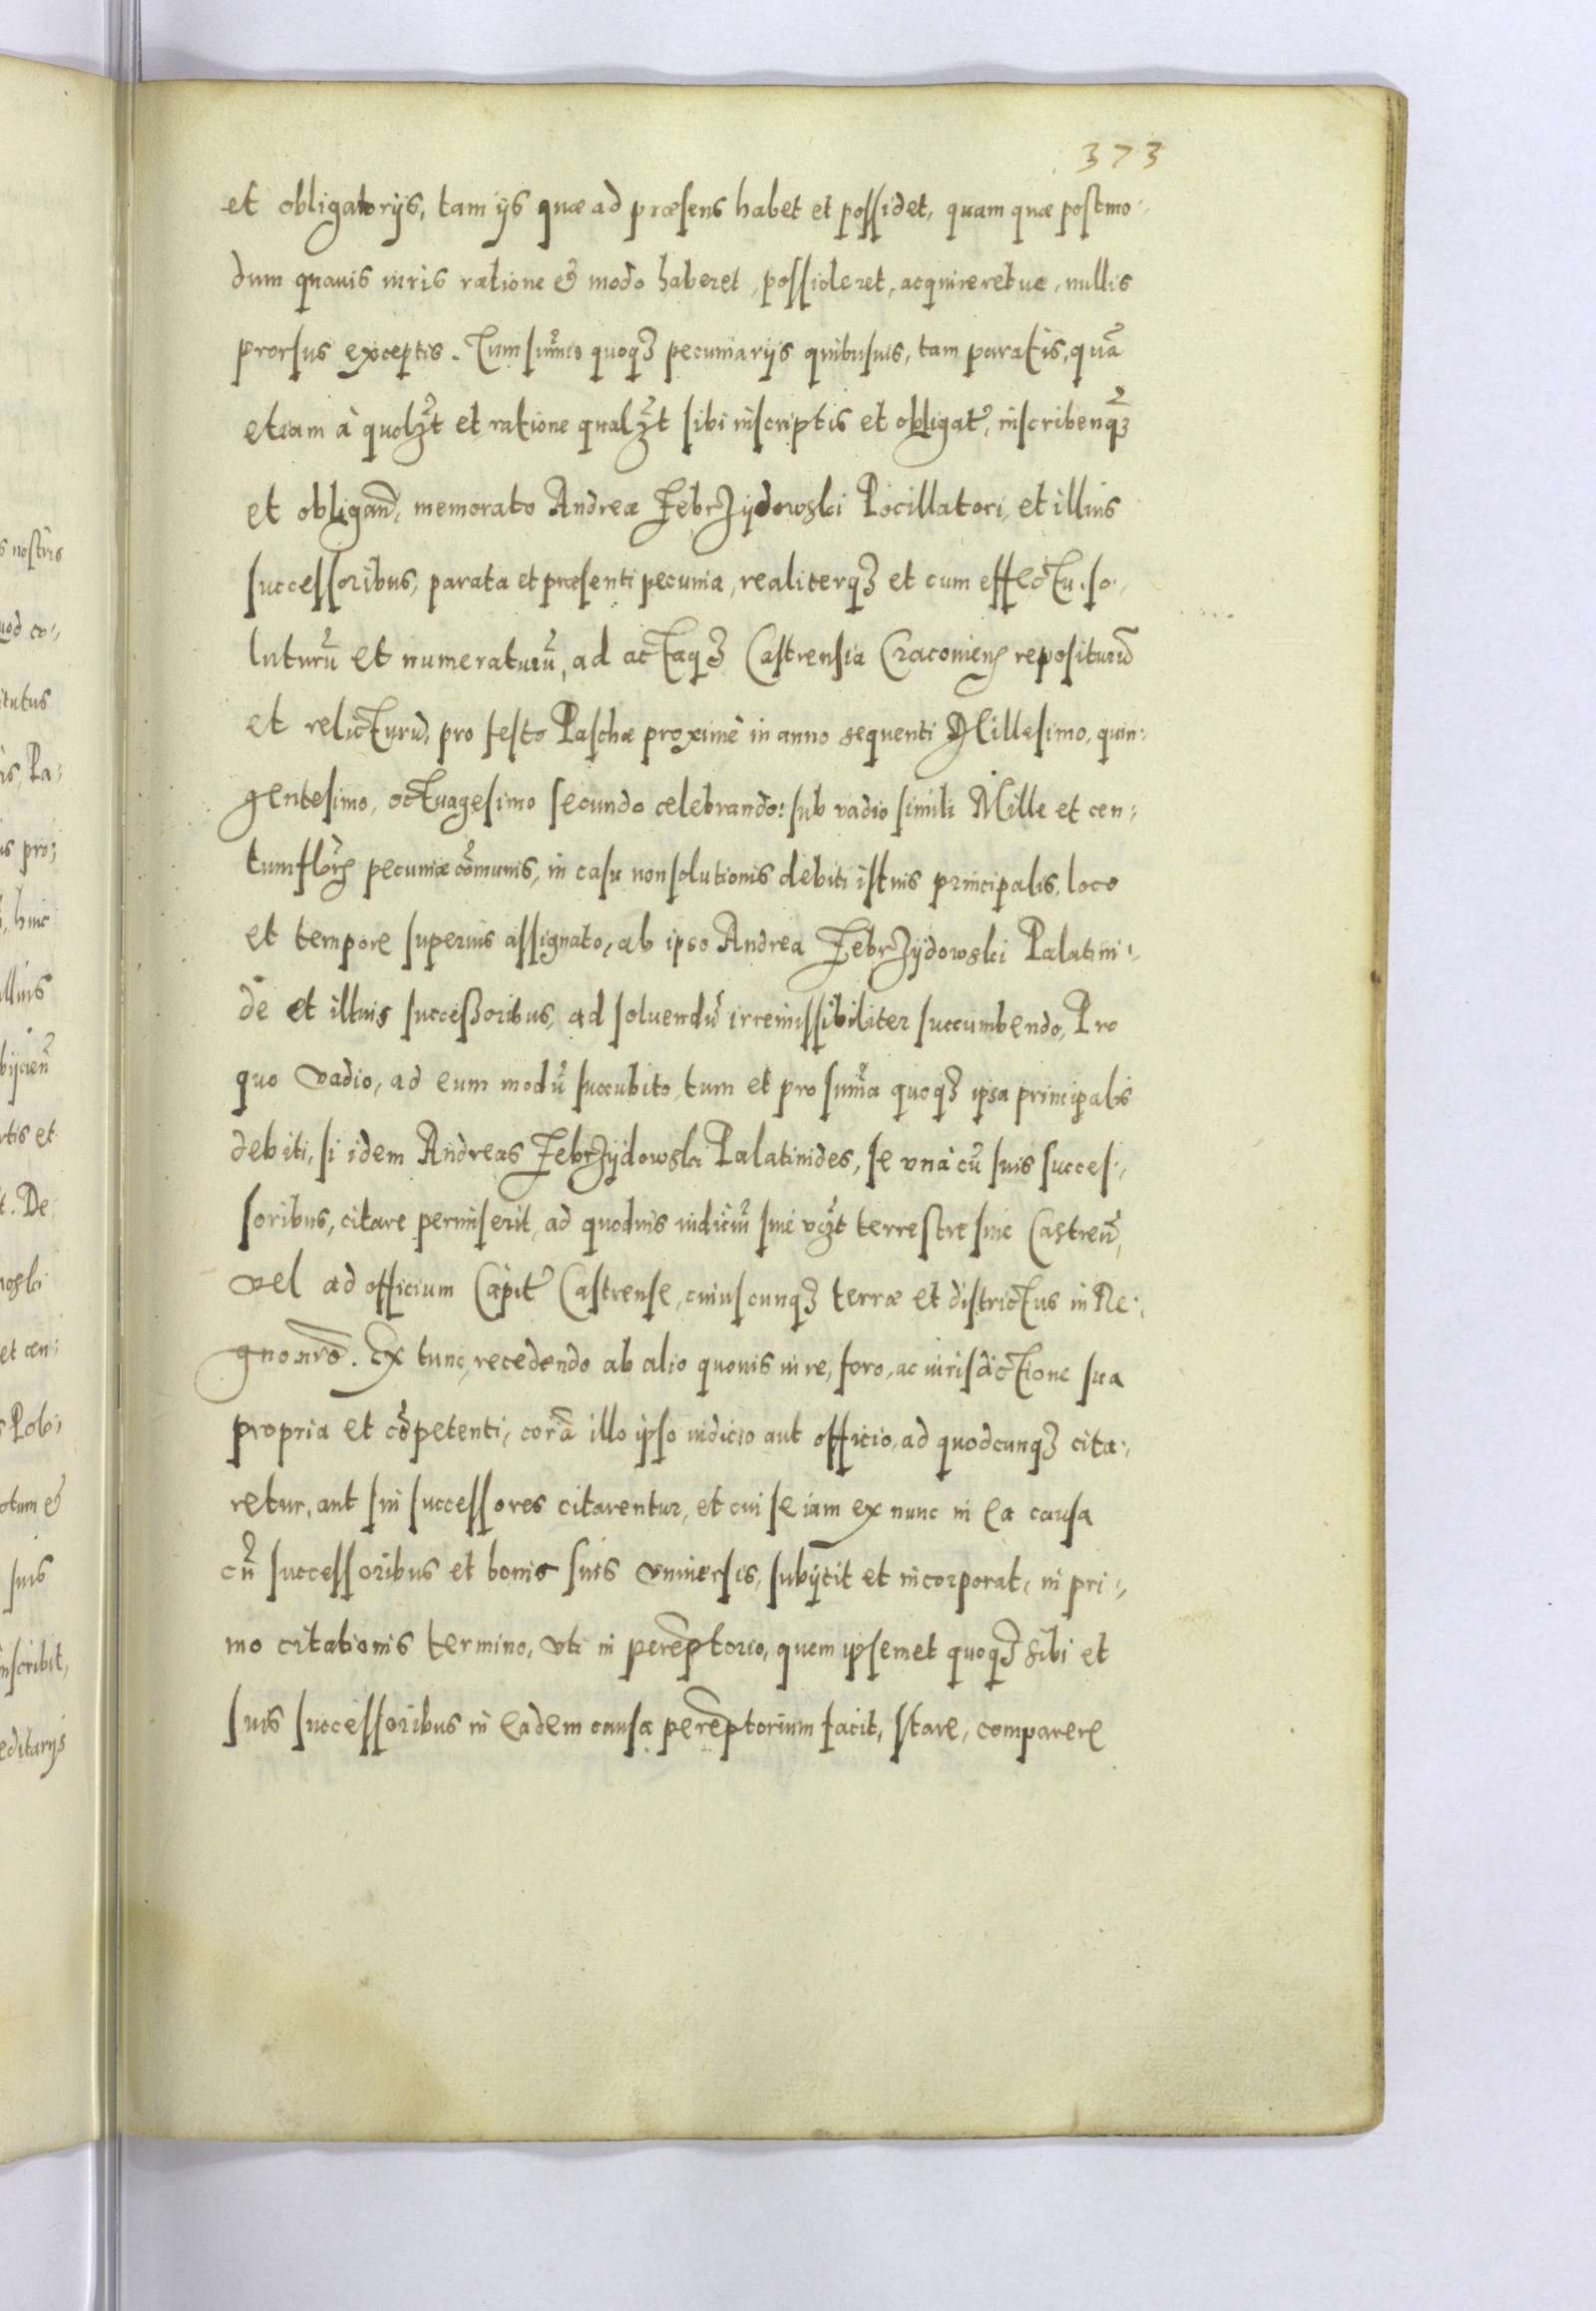 373
et obligatorijs, tam ijs quæ ad præsens habet et possidet, quam quæ postmo-
dum quauis iuris ratione & modo haberet, possideret, acquireretue, nullis
prorsus exceptis. Tum sum̃is quoq3 pecuniarijs quibusuis, tam paratis, quã
etiam à quolz̃t et ratione qualz̃t sibi inscriptis et obligat̃, inscribenq̃3
et obligand̃, memorato Andreæ Zebrzÿdowski Pocillatori, et illius
successoribus, parata et præsenti pecunia, realiterq3 et cum effectu so-
luturũ et numeraturũ, ad actaq3 Castrensia Cracouien̄ repositurũ
et relicturũ, pro festo Paschæ proximè in anno sequenti Millesimo, quin-
gentesimo, octuagesimo secundo celebrando: sub vadio simili Mille et cen-
tum flor̃ pecuniæ cõmunis, in casu non solutionis debiti istius principalis, loco
et tempore superius assignato, ab ipso Andrea Zebrzÿdowski Palatini-
de et illius successoribus, ad soluendũ irremissibiliter succumbendo, Pro
quo vadio, ad eum modũ succubito, tum et pro sum̃a quoq3 ipsa principalis
debiti, si idem Andreas Zebrzÿdowski Palatinides, se vnà cũ suis succes-
soribus, citare permiserit, ad quoduis iudiciũ siue vz̃t terrestre siue Castreñ,
vel ad officium Capit̃ Castrense, cuiuscunq3 terræ et districtus in Re-
gno nr̃o. Ex tunc, recedendo ab alio quouis iure, foro, ac iurisdictione sua
propria et cõpetenti, corã illo ipso iudicio aut officio, ad quodcunq3 cita-
retur, aut sui successores citarentur, et cui se iam ex nunc in ea causa
cũ successoribus et bonis suis vniuersis, subijcit et incorporat, in pri-
mo citationis termino, vti in perẽptorio, quem ipsemet quoq3 sibi et
suis successoribus in eadem causa perẽptorium facit, stare, comparere